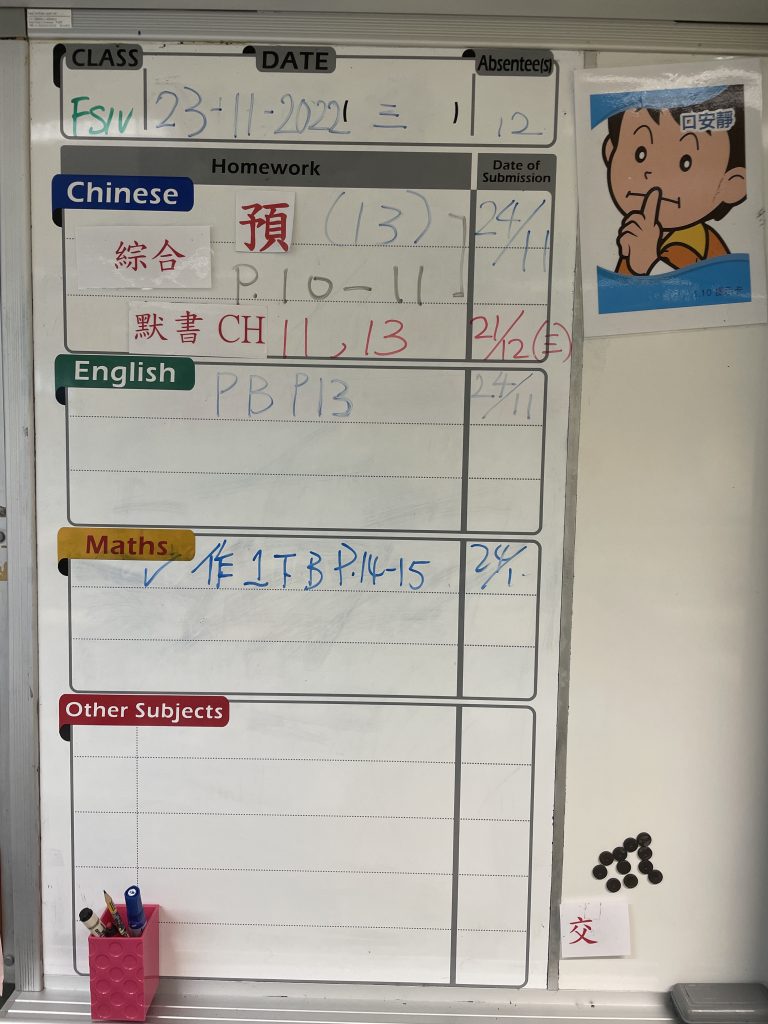 CLASS DATE Absentee(s)
FSIV 23-11-2022 ( 三 ) 12
Homework Date of Submission
Chinese
預 (13) 24/11
綜合
P.10-11
默書 CH 11, 13 21/12(三)
English
PB P13 24/11
Maths
✓ 作 1下B P.14-15 24/1.
Other Subjects
口安靜
交